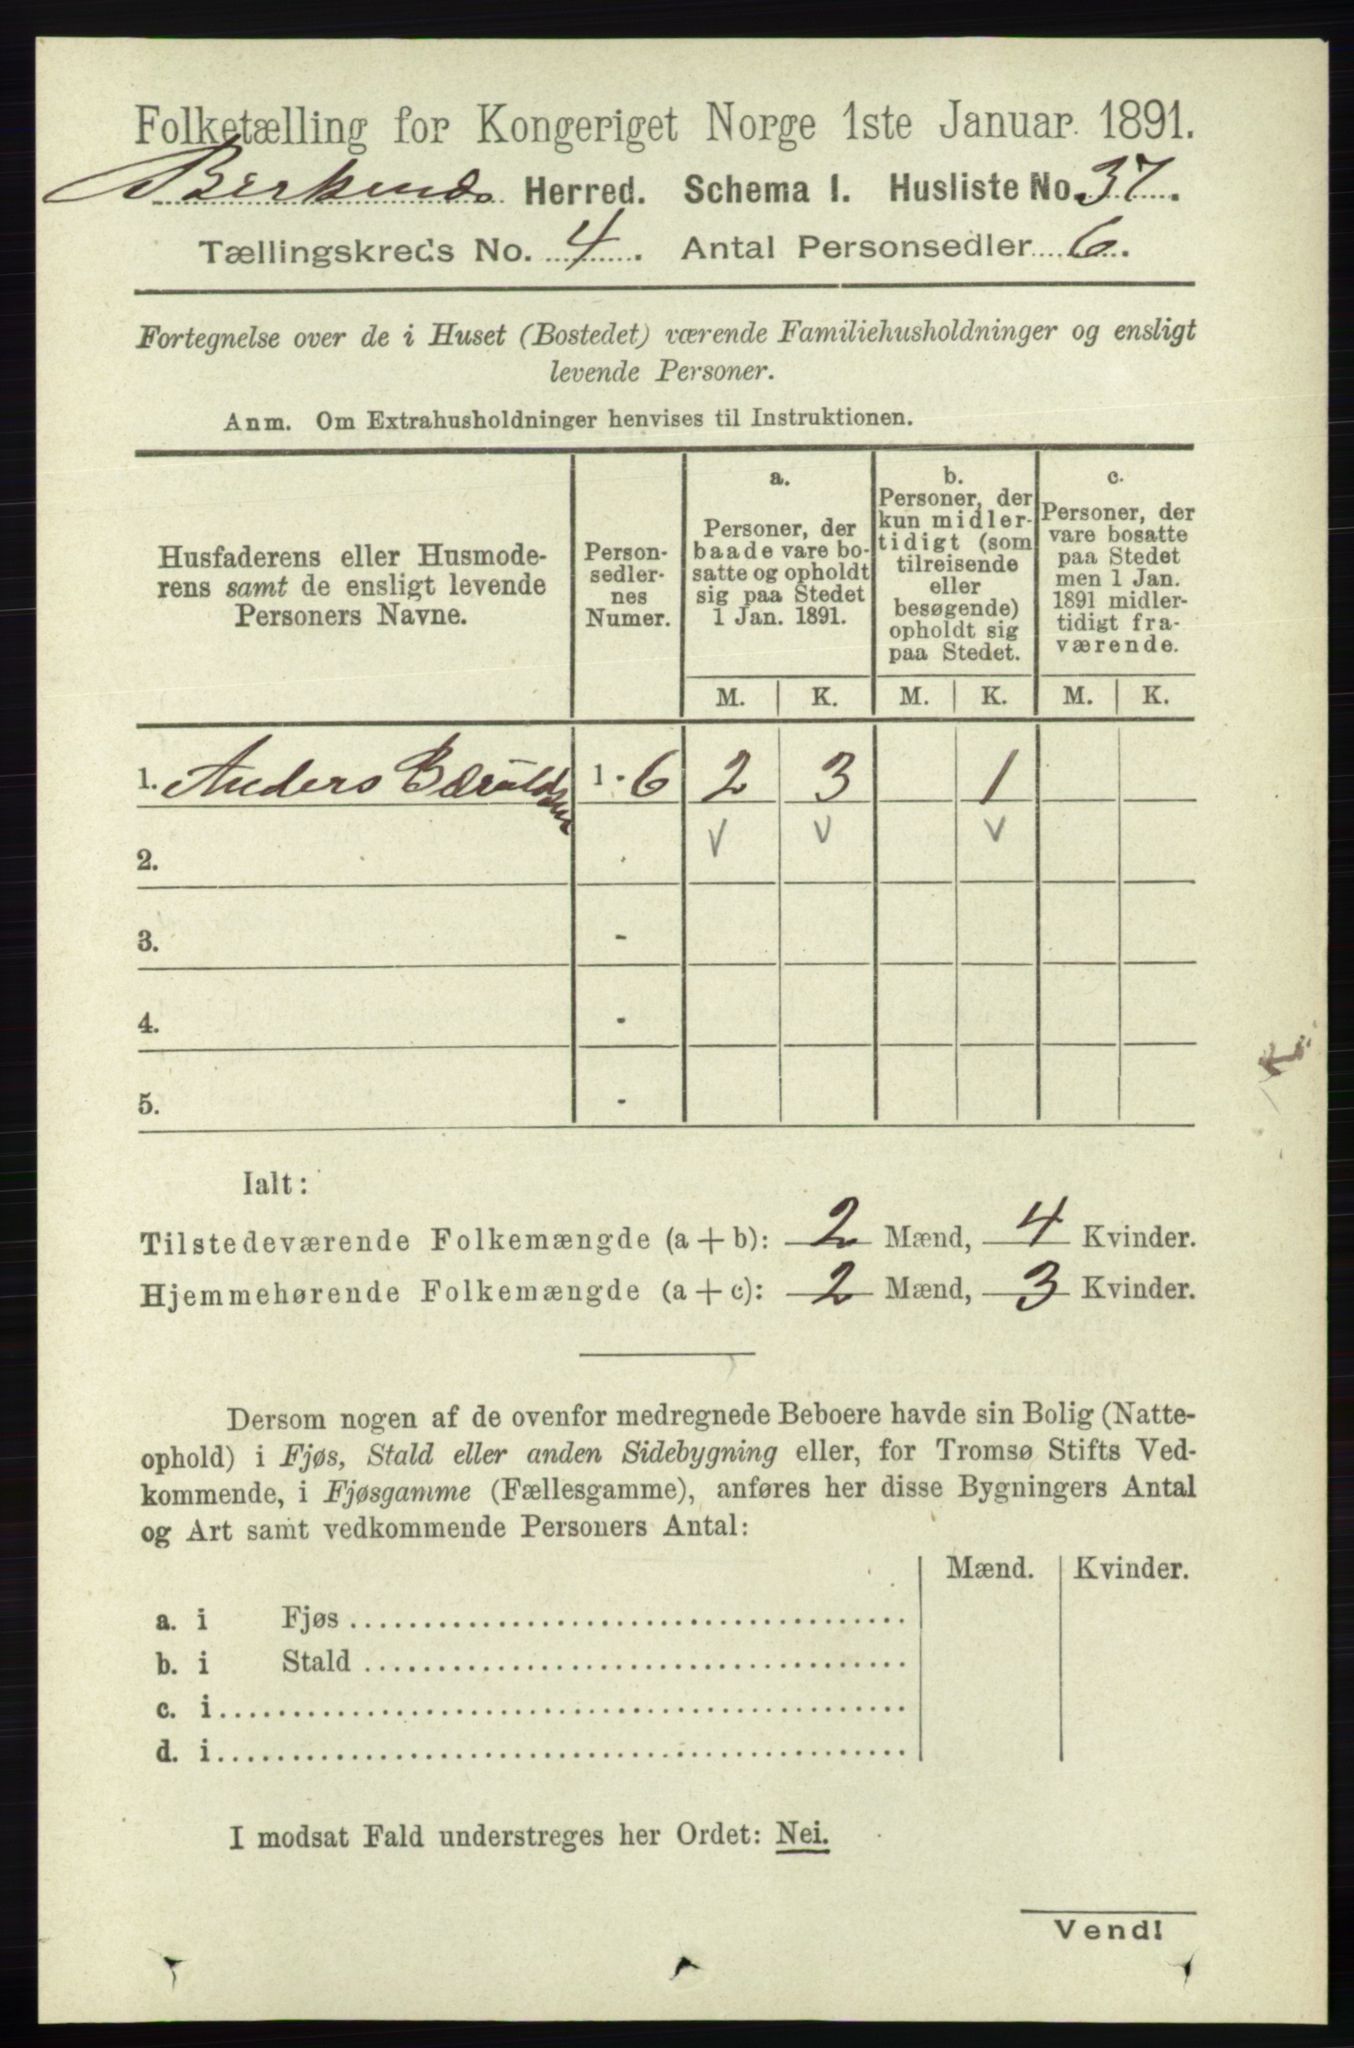 Folketælling for Kongeriget Norge 1ste Januar 1891.
Herred. Schema 1. Husliste No. 37.
Tællingskreds No. 4. Antal Personsedler 6.
Fortegnelse over de i Huset (Bostedet) værende Familiehusholdninger og ensligt
levende Personer.
Anm. Om Extrahusholdninger henvises til Instruktionen.
Husfaderens eller Husmode-
rens samt de ensligt levende
Personers Navne.
Person-
sedler-
nes
Numer.
a.
Personer, der
baade vare bo-
satte og opholdt
sig paa Stedet
1 Jan. 1891.
b.
Personer, der
kun midler-
tidigt (som
tilreisende
eller
besøgende)
opholdt sig
paa Stedet.
c.
Personer, der
vare bosatte
paa Stedet
men 1 Jan.
1891 midler-
tidigt fra-
værende.
M. K. M. K. M. K.
1. Anders 1 - 6 2 3 1
2.
3. -
4. -
5. -
Ialt:
Tilstedeværende Folkemængde (a + b): 2 Mænd, 4 Kvinder.
Hjemmehørende Folkemængde (a + c): 2 Mænd, 3 Kvinder.
Dersom nogen af de ovenfor medregnede Beboere havde sin Bolig (Natte-
ophold) i Fjøs, Stald eller anden Sidebygning eller, for Tromsø Stifts Ved-
kommende, i Fjøsgamme (Fællesgamme), anføres her disse Bygningers Antal
og Art samt vedkommende Personers Antal:
Mænd. Kvinder.
a. i Fjøs
b. i Stald
c. i
d. i
I modsat Fald understreges her Ordet: Nei.
Vend!